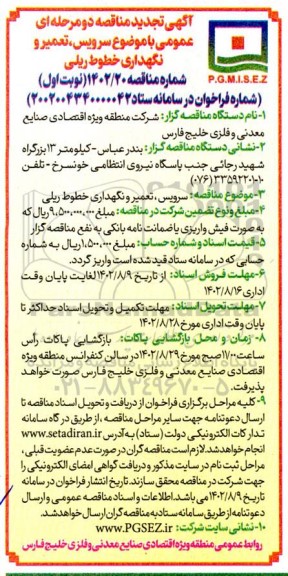 آگهی تجدید مناقصه دو مرحله ای
عمومی با موضوع سرویس، تعمیر و
نگهداری خطوط ریلی
شماره مناقصه ۱۴۰۲/۲۰ (نوبت اول)
P.G.M.I.S.E.Z
(شماره فراخوان در سامانه ستاد ۲۰۰۲۰۰۴۳۴۰۰۰۰۰۴۲)
۱-نام دستگاه مناقصه گزار: شرکت منطقه ویژه اقتصادی صنایع
معدنی و فلزی خلیج فارس
۲-نشانی دستگاه مناقصه گزار: بندرعباس - کیلومتر ۱۳ بزرگراه
شهید رجائی جنب پاسگاه نیروی انتظامی خونسرخ - تلفن
۳-موضوع مناقصه: سرویس، تعمیر و نگهداری خطوط ریلی
۴-مبلغ و نوع تضمین شرکت در مناقصه: مبلغ ۹,۵۰۰,۰۰۰,۰۰۰ ریال که
به صورت فیش واریزی یا ضمانت نامه بانکی به نفع مناقصه گزار
۵-قیمت اسناد و شماره حساب: مبلغ ۱,۵۰۰,۰۰۰ ریال به شماره
حسابی که در سامانه ستاد قید شده است واریز گردد.
۶-مهلت فروش اسناد: از تاریخ ۱۴۰۲/۸/۹ لغایت پایان وقت
اداری ۱۴۰۲/۸/۱۶
۷-مهلت تحویل اسناد: مهلت تکمیل و تحویل اسناد حداکثر تا
پایان وقت اداری مورخ ۱۴۰۲/۸/۲۸
۸- زمان و محل بازگشایی پاکات: بازگشایی پاکات رأس
ساعت ۱۱/۰۰ صبح مورخ ۱۴۰۲/۸/۲۹ در سالن کنفرانس منطقه ویژه
اقتصادی صنایع معدنی و فلزی خلیج فارس صورت خواهد
پذیرفت.
۰۲۱-۸۸۳۴۹۶۷۰-۵
۹-کلیه مراحل برگزاری فراخوان از دریافت و تحویل اسناد مناقصه تا
ارسال دعوتنامه جهت سایر مراحل مناقصه، از طریق درگاه سامانه
تدارکات الکترونیکی دولت (ستاد) به آدرس www.setadiran.ir
انجام خواهد شد. لازم است مناقصه گران در صورت عدم عضویت قبلی،
مراحل ثبت نام در سایت مذکور و دریافت گواهی امضای الکترونیکی را
جهت شرکت در مناقصه محقق سازند. تاریخ انتشار فراخوان در سامانه
تاریخ ۱۴۰۲/۸/۹ می باشد. اطلاعات و اسناد مناقصه عمومی و ارسال
دعوتنامه از طریق سامانه ستاد به مناقصه گران ارسال خواهد شد.
۱۰-نشانی سایت شرکت: www.PGSEZ.ir
روابط عمومی منطقه ویژه اقتصادی صنایع معدنی و فلزی خلیج فارس